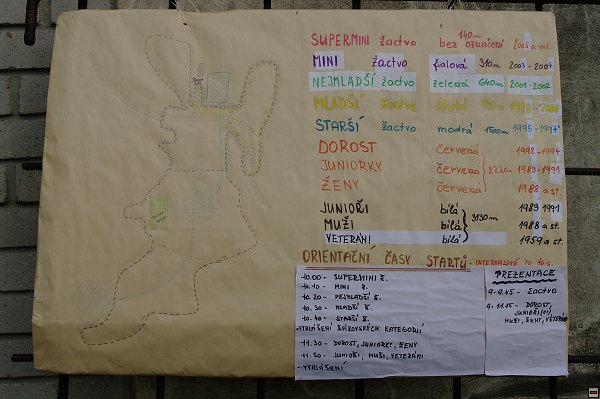 SUPERMINI žactvo 140m bez označení 2005 a ml.
MINI žactvo fialová 310m 2003 - 2004
NEJMLADŠÍ žactvo zelená 640m 2001 - 2002
MLADŠÍ žactvo žlutá
STARŠÍ žactvo modrá 1500m 1995 - 1997
DOROST červená 1992 - 1994
JUNIORKY červená 2220m 1989 - 1991
ŽENY červená 1988 a st.
JUNIOŘI bílá 1989 1991
MUŽI bílá 3130m 1988 a st.
VETERÁNI bílá 1959 a st.
ORIENTAČNÍ ČASY STARTŮ - INTERVALOVĚ PO 10 s.
10.00 - SUPERMINI Ž.
10.10 - MINI Ž.
10.20 - NEJMLADŠÍ Ž.
10.30 - MLADŠÍ Ž.
10.40 - STARŠÍ Ž.
VYHLÁŠENÍ ŽÁKOVSKÝCH KATEGORIÍ
11.30 - DOROST, JUNIORKY, ŽENY
11.50 - JUNIOŘI, MUŽI, VETERÁNI
- VYHLÁŠENÍ
PREZENTACE
9 - 9.45 - ŽACTVO
9 - 11.15 - DOROST,
JUNIOŘI(KY)
MUŽI, ŽENY, VETERÁNI